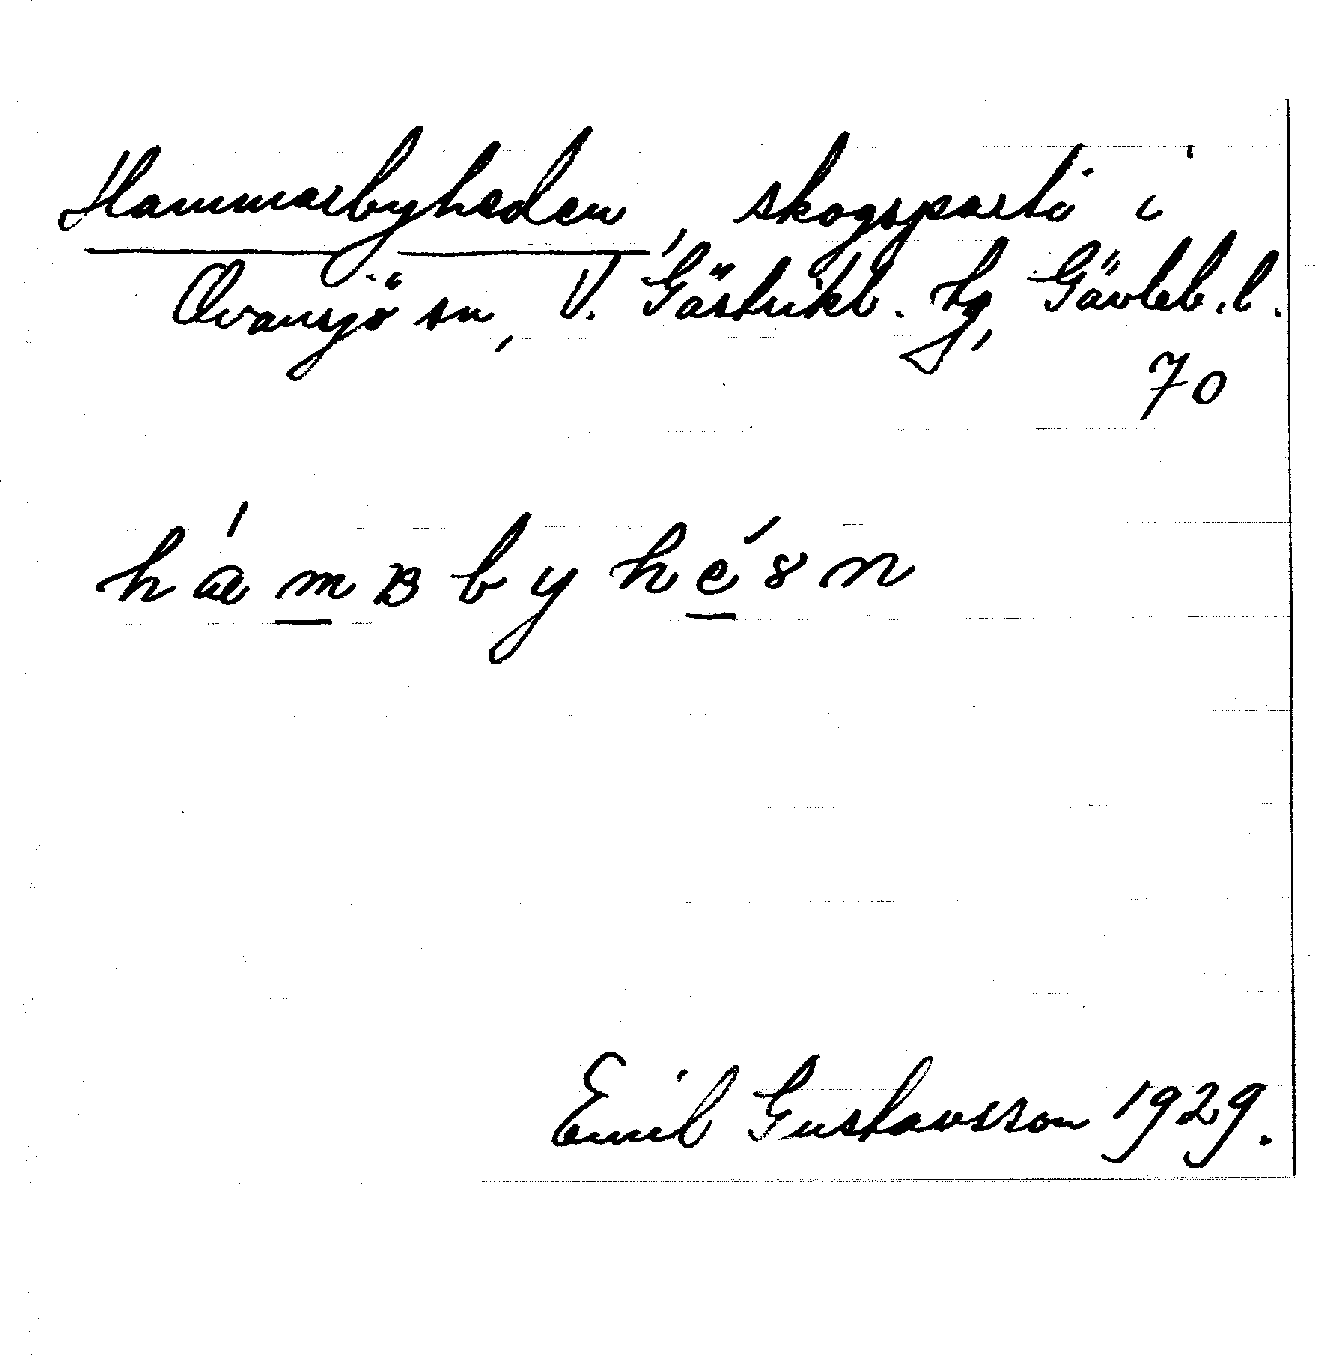 Hammarbyheden, skogsparti i
Ovansjö sn, V. Gästrikl. tg, Gävleb. l.
70
Emil Gustavsson 1929.